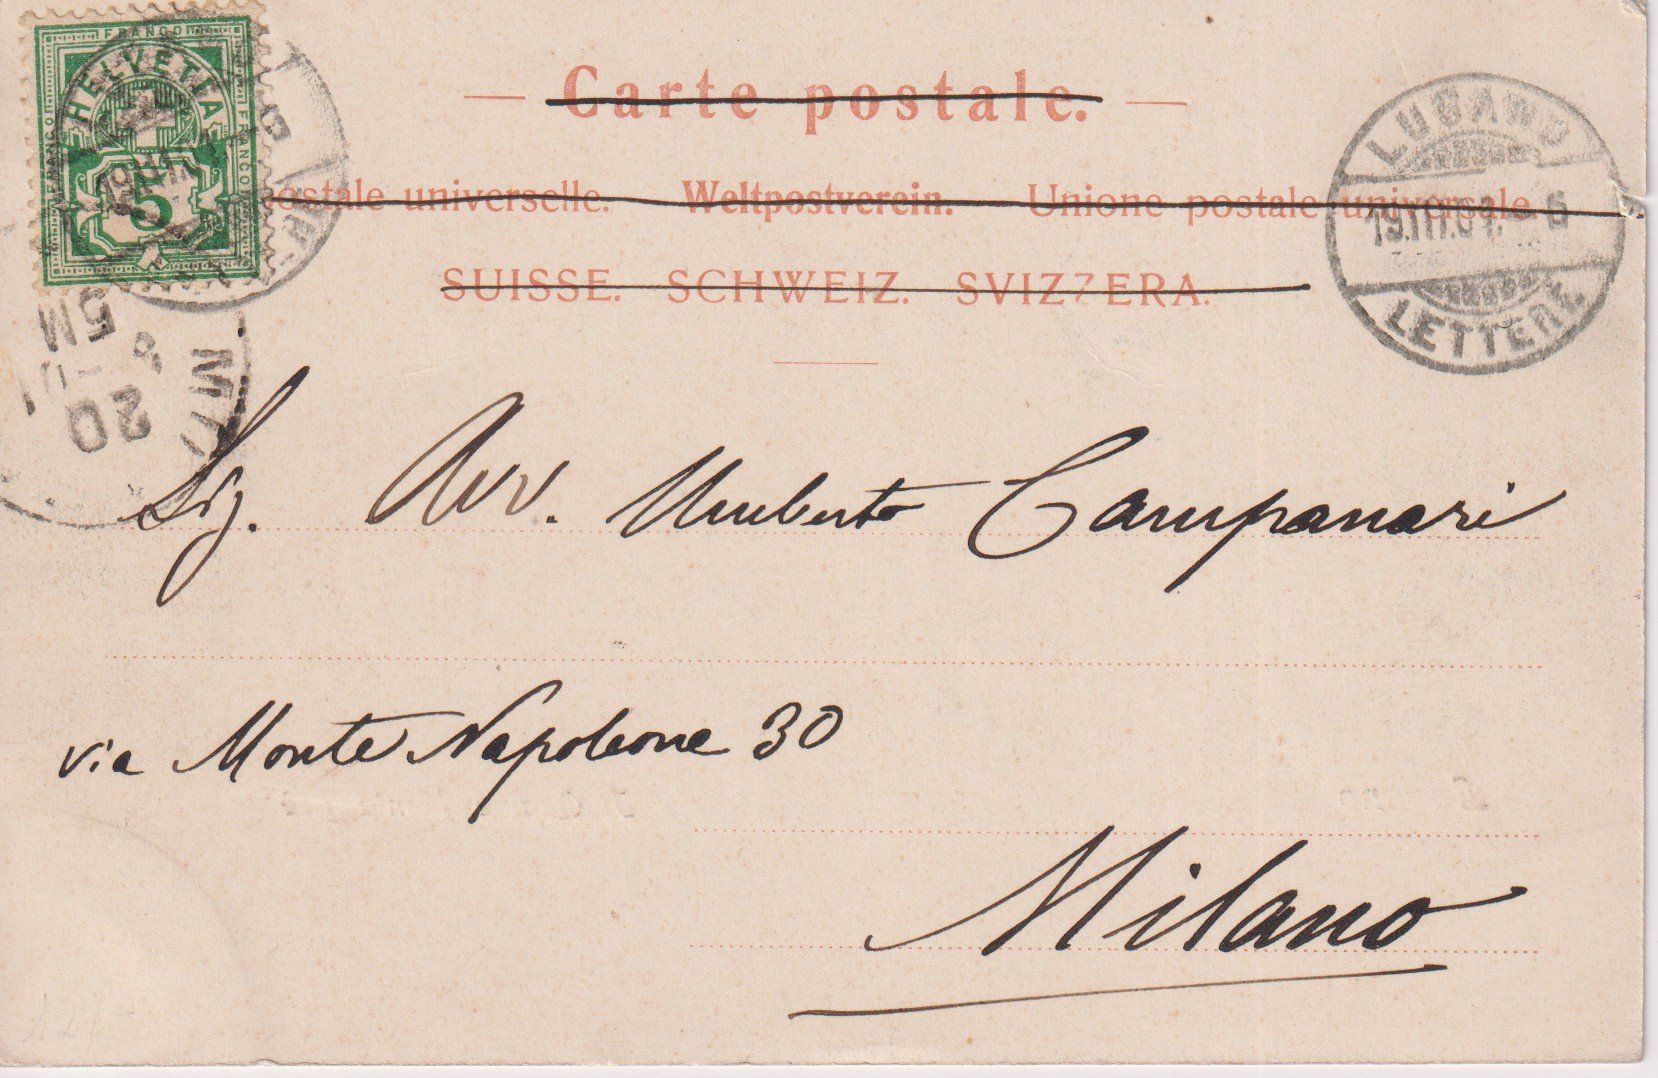 FRANCO
HELVETIA
FRANCO
FRANCO
5
Carte postale.
postale universelle. Weltpostverein. Unione postale universale.
SUISSE. SCHWEIZ. SVIZZERA.
LUGANO
19.III.01. 5
LETTERE
5M
20
MI
Sig. Avv. Umberto Campanari
via Monte Napoleone 30
Milano
127-